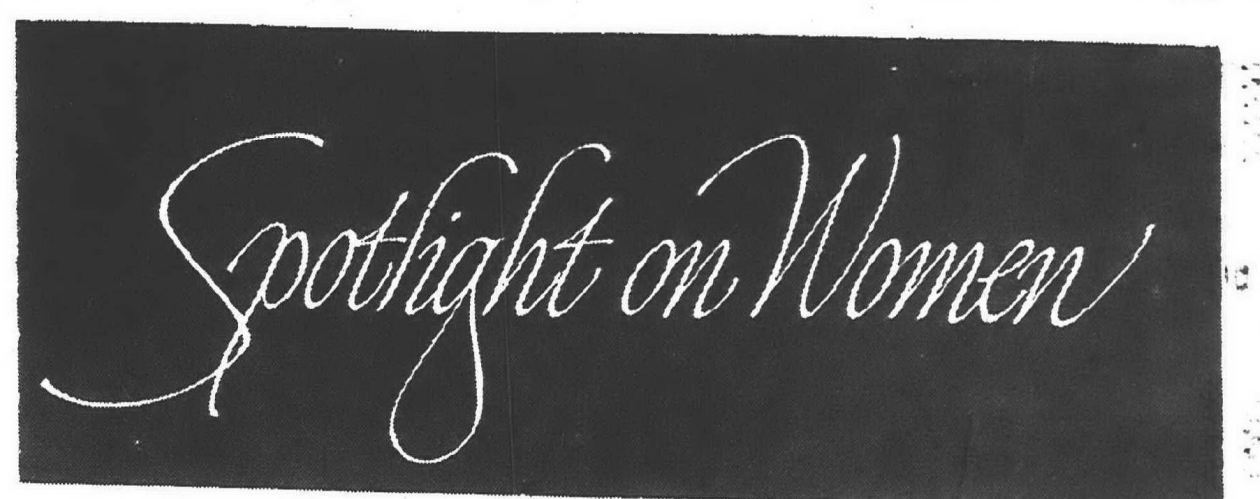 Spotlight on Women